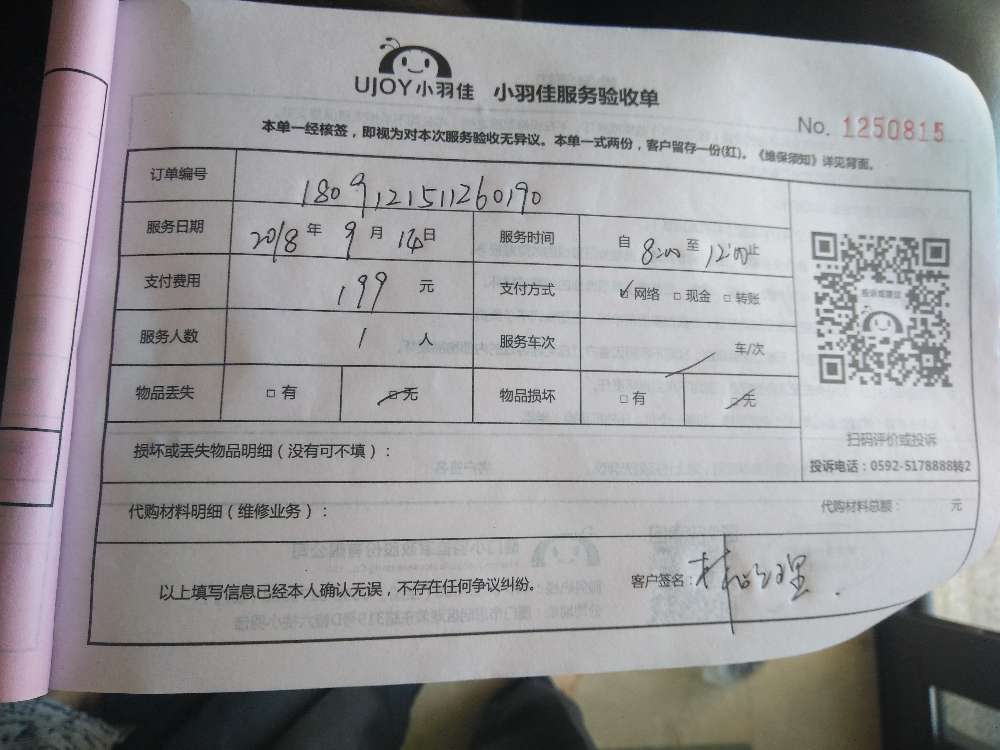 UJOY小羽佳 小羽佳服务验收单
No. 1250815
本单一经核签，即视为对本次服务验收无异议。本单一式两份，客户留存一份(红)。《维保须知》详见背面。
订单编号 1809121511260190
服务日期 2018年9月14日 服务时间 自8:00至12:00止
支付费用 199元 支付方式 ☑网络 □现金 □转账
服务人数 1人 服务车次 / 车/次
投诉或建议
物品丢失 □有 ☑无 物品损坏 □有 ☑无
扫码评价或投诉
损坏或丢失物品明细（没有可不填）：
投诉电话：0592-5178888转2
代购材料明细（维修业务）： 代购材料总额： 元
以上填写信息已经本人确认无误，不存在任何争议纠纷。 客户签名：林经理